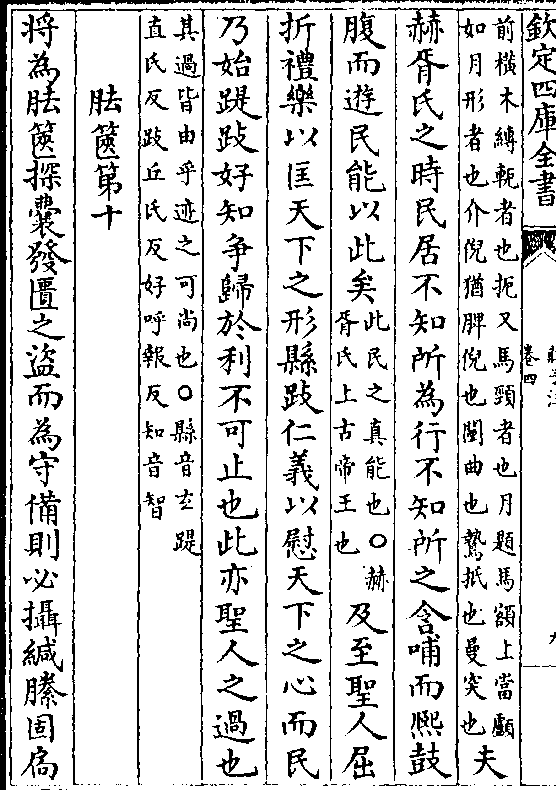 欽定四庫全書
卷四
前横木縛軛者也扼又馬頸者也月題馬額上當顱
如月形者也介倪猶睥倪也闉曲也鷙抵也曼突也夫
赫胥氏之時民居不知所為行不知所之含哺而熈鼓
腹而遊民能以此矣此民之真能也○赫
胥氏上古帝王也及至聖人屈
折禮樂以匡天下之形縣跂仁義以慰天下之心而民
乃始踶跂好知争歸於利不可止也此亦聖人之過也
其過皆由乎迹之可尚也○縣音玄踶
直氏反跂丘氏反好呼報反知音智
胠篋第十
将為胠篋探囊發匱之盗而為守備則必攝緘縢固扃